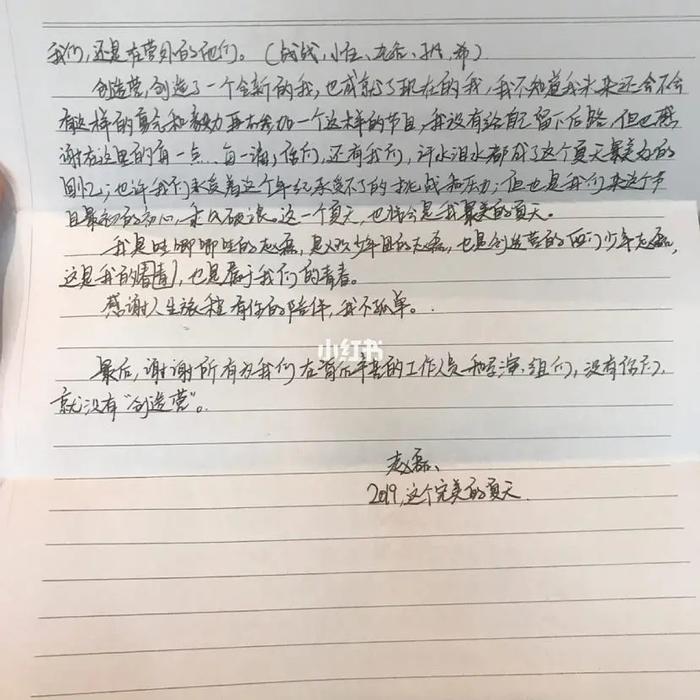 我们,还是在营外的他们。(战战,小任,
创造营,创造了一个全新的我,也成就了现在的我,我不知道我未来还会不会
有这样的勇气和毅力再去参加一个这样的节目,我没有给自己留下后路,但也感
谢在这里的每一点…每一滴,你们,还有我们,汗水泪水都成了这个夏天最美好的
回忆;也许我们承受着这个年纪承受不了的挑战和压力;但也是我们来这个节
目最初的初心,乘风破浪。这一个夏天,也恰会是我最美的夏天。
我是哇唧唧哇的赵磊,是火炆少年团的赵磊,也是创造营的西门少年赵磊,
这是我的青春,也是属于我们的青春。
感谢人生旅程有你的陪伴,我不孤单。
小红书
最后,谢谢所有为我们在背后辛苦的工作人员和导演组们,没有你们,
就没有"创造营"。
赵磊、
2019,这个完美的夏天